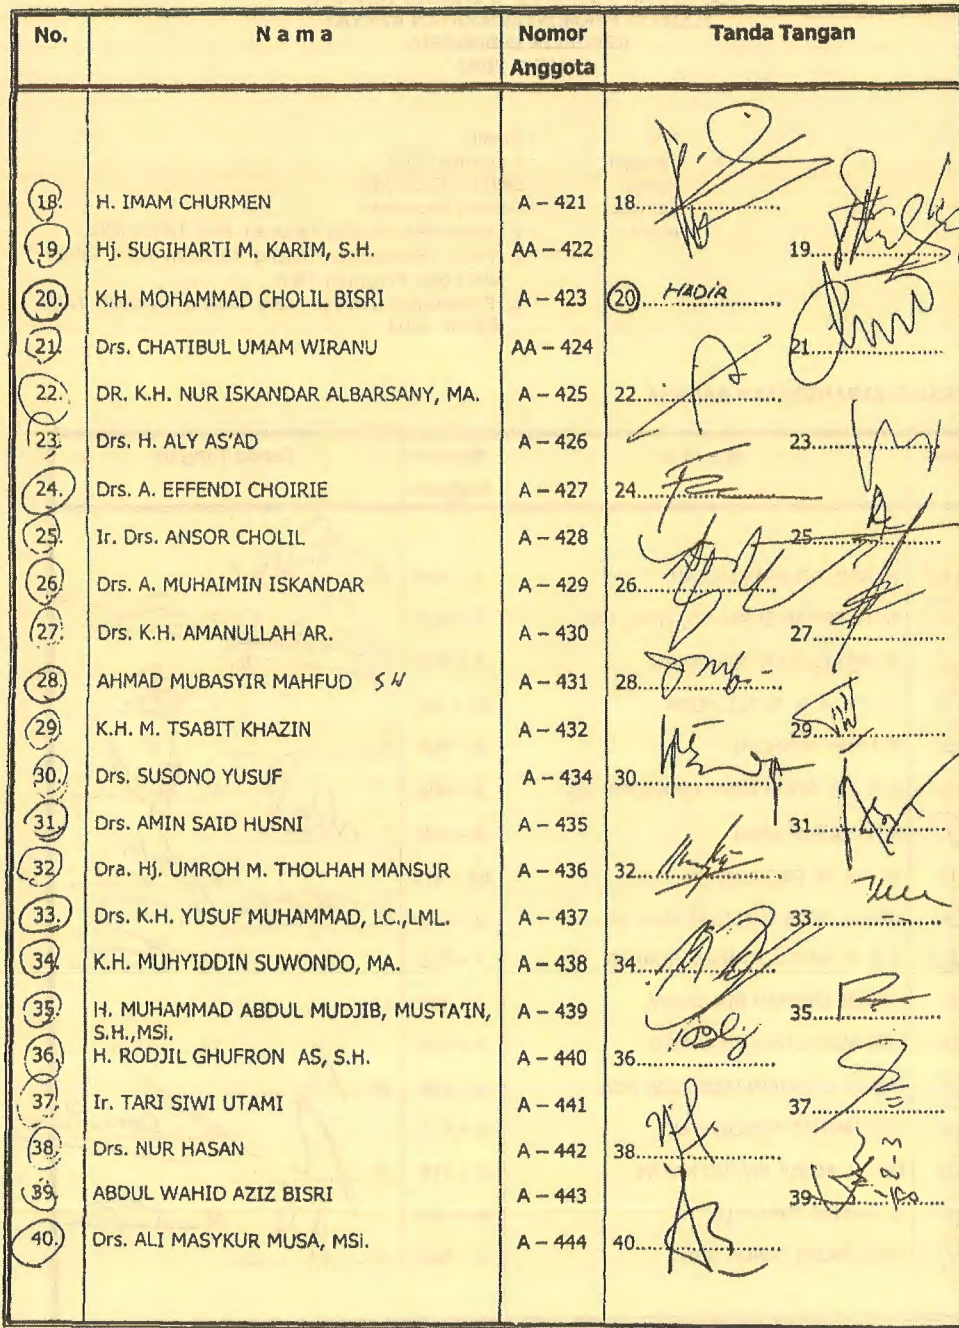 No. N a m a Nomor Anggota Tanda Tangan
18. H. IMAM CHURMEN A – 421 18
19. Hj. SUGIHARTI M. KARIM, S.H. AA – 422 19
20. K.H. MOHAMMAD CHOLIL BISRI A – 423 20 HADIR
21. Drs. CHATIBUL UMAM WIRANU AA – 424 21
22. DR. K.H. NUR ISKANDAR ALBARSANY, MA. A – 425 22
23. Drs. H. ALY AS'AD A – 426 23
24. Drs. A. EFFENDI CHOIRIE A – 427 24
25. Ir. Drs. ANSOR CHOLIL A – 428 25
26. Drs. A. MUHAIMIN ISKANDAR A – 429 26
27. Drs. K.H. AMANULLAH AR. A – 430 27
28. AHMAD MUBASYIR MAHFUD SH A – 431 28
29. K.H. M. TSABIT KHAZIN A – 432 29
30. Drs. SUSONO YUSUF A – 434 30
31. Drs. AMIN SAID HUSNI A – 435 31
32. Dra. Hj. UMROH M. THOLHAH MANSUR A – 436 32
33. Drs. K.H. YUSUF MUHAMMAD, LC.,LML. A – 437 33
34. K.H. MUHYIDDIN SUWONDO, MA. A – 438 34
35. H. MUHAMMAD ABDUL MUDJIB, MUSTA'IN, A – 439 35
S.H.,MSi.
36. H. RODJIL GHUFRON AS, S.H. A – 440 36
37. Ir. TARI SIWI UTAMI A – 441 37
38. Drs. NUR HASAN A – 442 38
39. ABDUL WAHID AZIZ BISRI A – 443 39
40. Drs. ALI MASYKUR MUSA, MSi. A – 444 40